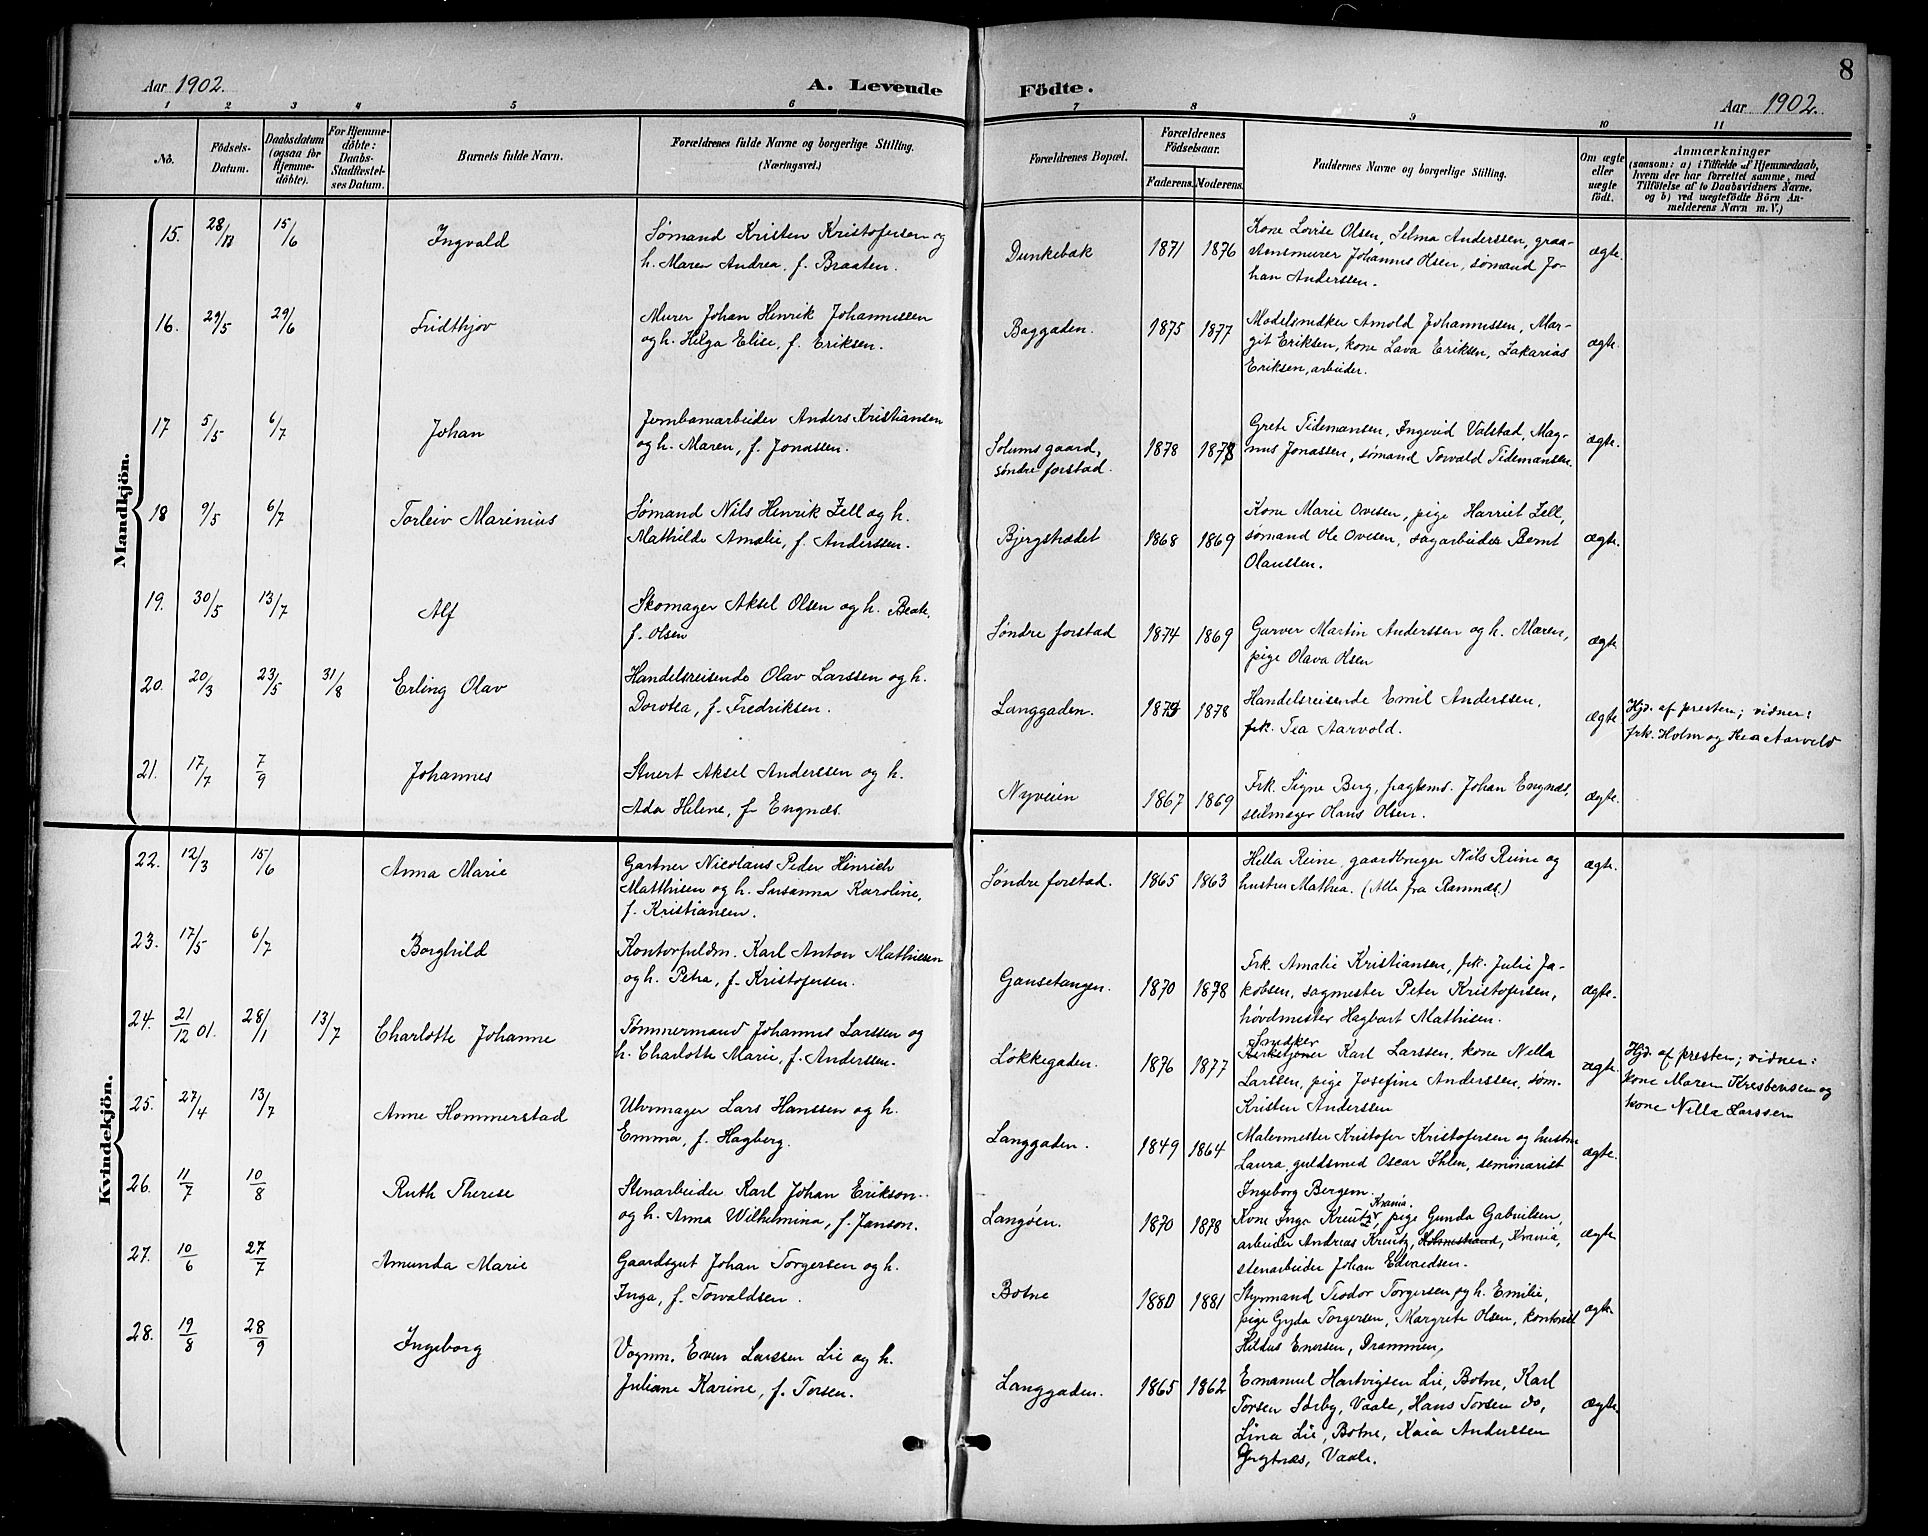 8
Aar 1902.
A. Levende
Födte.
Aar 1902.
1 2 3 4 5 6 7 8 9 10 11
No.
Födsels-
Datum.
Daabsdatum
(ogsaa for
Hjemme-
döbte).
For Hjemme-
döbte:
Daabs-
Stadfæstel-
ses Datum.
Barnets fulde Navn.
Forældrenes fulde Navne og borgerlige Stilling.
(Næringsvei.)
Forældrenes Bopæl.
Forældrenes
Födselsaar.
Faderens. Moderens.
Faddernes Navne og borgerlige Stilling.
Om ægte
eller
uægte
födt.
Anmærkninger
(saasom: a) i Tilfælde af Hjemmedaab,
hvem der har forrettet samme, med
Tilföielse af to Daabsvidners Navne,
og b) ved uægtefödte Börn An-
melderens Navn m. V.)
Mandkjön.
15. 28/ 15/6 Ingvald
Sømand Kristen Kristofersen og
h. Maren Andrea, f. Braaten.
Dunkebæk 1871 1876
Kone Lovise Olsen, Selma Anderssen, graa-
stensmurer Johannes Olsen, sømand Jo-
han Anderssen.
ægte.
16. 29/5 29/6 Fridthjov
Murer Johan Henrik Johannessen
og h. Helga Elise, f. Eriksen.
Baggaden. 1875 1877
Modelsnedker Arnold Johannessen, Mar-
git Eriksen, kone Lava Eriksen, Sakarias
Eriksen, arbeider.
ægte.
17 5/5 6/7 Johan
Jernbanearbeider Anders Kristiansen
og h. Maren, f. Jonassen.
Solums gaard,
søndre forstad.
1878 1878
Grete Tidemansen, Ingvid Valstad, Mag-
nus Jonassen, sømand Torvald Tidemansen.
ægte.
18 9/5 6/7 Torleiv Marinius
Sømand Nils Henrik Zell og h.
Mathilde Amalie, f. Anderssen.
Bjergstrædet 1868 1869
Kone Marie Ovesen, pige Harriet Zell,
sømand Ole Ovesen, sagarbeider Bernt
Olaussen.
ægte.
19. 30/5 13/7 Alf
Skomager Aksel Olsen og h. Beate,
f. Olsen
Søndre forstad 1874 1869
Garver Martin Anderssen og h. Maren,
pige Olava Olsen
ægte
20. 20/3 23/5 31/8 Erling Olav
Handelsreisende Olav Larssen og h.
Dorotea, f. Fredriksen.
Langgaden. 1875 1878
Handelsreisende Emil Anderssen,
frk. Tea Aarvold.
ægte
Hjd. af presten; vidner:
frk. Holm og Thea Aarvold
21. 17/7 7/9 Johannes
Stuert Aksel Anderssen og h.
Ada Helene, f. Engnæs.
Nyveien 1867 1869
Frk. Signe Berg, fagtems. Johan Engnæs,
seilmager Hans Olsen.
ægte.
Kvindekjön.
22. 12/3 15/6 Anna Marie
Gartner Nicolaus Peder Hinrich
Matthisen og h. Susanna Karoline,
f. Kristiansen.
Søndre forstad. 1865 1863
Hella Reine, gaardbruger Nils Reine og
hustru Mathea. (Alle fra Ramnæs.)
ægte.
23. 17/5 6/7 Borghild
Kontorfuldm. Karl Anton Mathiesen
og h. Petra, f. Kristofersen.
Gausetangen. 1870 1878
Frk. Amalie Kristiansen, frk. Julie Ja-
kobsen, sagmester Peter Kristofersen,
høvdmester Hagbart Mathisen.
ægte.
24. 21/12 01. 28/1 13/7 Charlotte Johanne
Tømmermand Johannes Larssen og
h. Charlotte Marie, f. Anderssen.
Løkkegaden. 1876 1877
Snedker
Karl Larssen, kone Nella
Larssen, pige Josefine Anderssen, søm.
Kristen Anderssen
ægte.
Hjd. af presten; vidner:
kone Maren Kristensen og
kone Nilla Larssen
25. 27/4 13/7 Anne Hommerstad
Uhrmager Lars Hanssen og h.
Emma, f. Hagberg.
Langgaden. 1849 1864
Malermester Kristofer Kristofersen og hustru
Laura, guldsmed Oscar Ihlen, seminarist
Ingeborg Bergem.
ægte.
26. 11/7 10/8 Ruth Therese
Stenarbeider Karl Johan Erikson
og h. Anna Wilhelmina, f. Janson.
Langøen. 1870 1878
Krania.
Kone Inga Kreutz, pige Gunda Gabrielsen,
arbeider Andreas Kreutz, Holmestrand, Krania,
stenarbeider Johan Edvardsen.
ægte
27. 10/6 27/7 Amunda Marie
Gaardsgut Johan Torgersen og h.
Inga, f. Torvaldsen.
Botne 1880 1881
Styrmand Teodor Torgersen og h. Emilie,
pige Gyda Torgersen, Margrete Olsen, kontorist
Hildus Enersen, Drammen,
ægte
28. 19/8 28/9 Ingeborg
Vognm. Even Larssen Lie og h.
Juliane Karine, f. Torsen.
Langgaden. 1865 1862
Emanuel Hartvigsen Lie, Botne, Karl
Torsen Sørby, Vaale, Hans Torsen do,
Lina Lie, Botne, Kaia Anderssen
Gregtnæs, Vaale.
ægte.